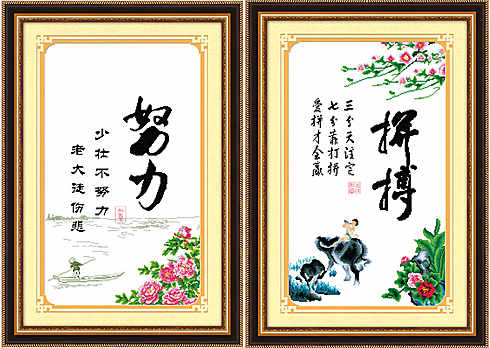 努力
少壮不努力
老大徒伤悲
拼搏
三分天注定
七分靠打拼
爱拼才会赢